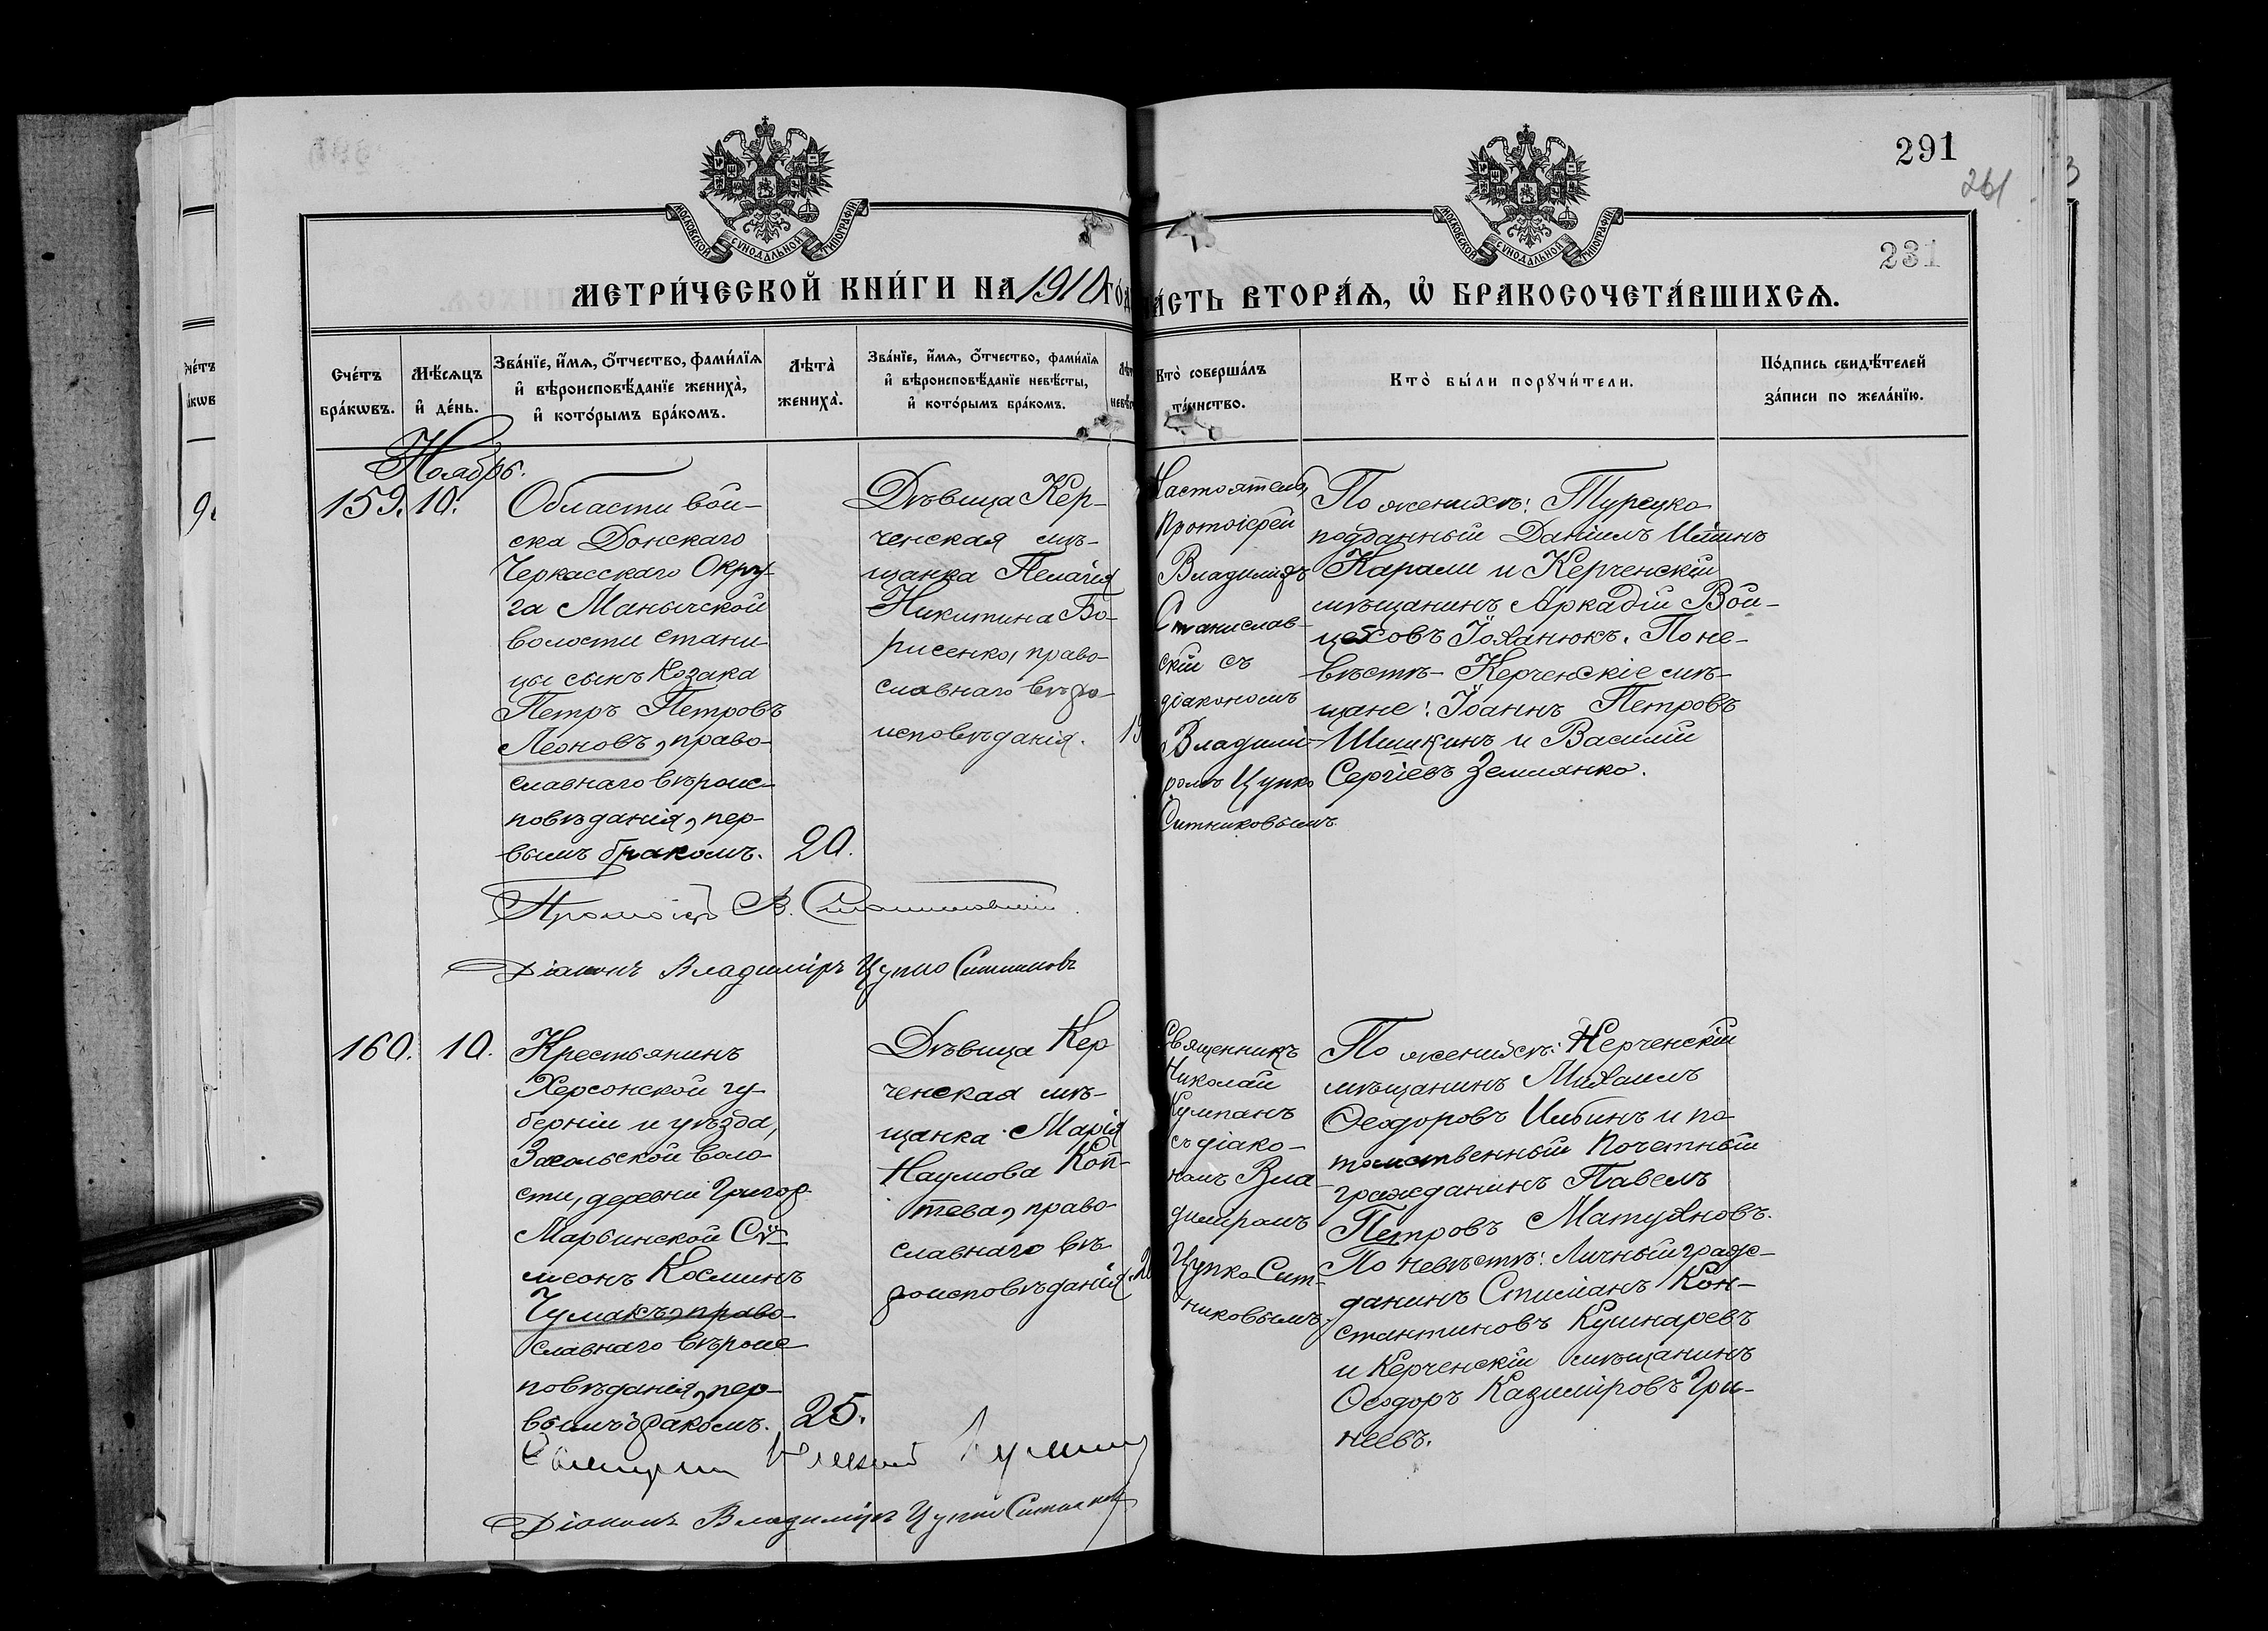 291
261
231
МОСКОВСКОЙ СѴНОДАЛЬНОЙ ТИПОГРАФІИ
МОСКОВСКОЙ СѴНОДАЛЬНОЙ ТИПОГРАФІИ
МЕТРИ́ЧЕСКОЙ КНИ́ГИ НА 1910 ГО́Д
ЧА́СТЬ ВТОРА́Ѧ, Ѽ БРАКОСОЧЕТА́ВШИХСѦ.
Сче́тъ
бра́кѡвъ.
Мѣ́сѧцъ
и҆ де́нь.
Зва́нїе, и҆́мѧ, ѻ҆́тчество, фами́лїѧ
и҆ вѣроисповѣ́данїе жениха̀,
и҆ кото́рымъ бра́комъ.
Лѣта̀
жениха̀.
Зва́нїе, и҆́мѧ, ѻ҆́тчество, фами́лїѧ
и҆ вѣроисповѣ́данїе невѣ́сты,
и҆ кото́рымъ бра́комъ.
Кто̀ соверша́лъ
та́инство.
Кто̀ бы́ли порꙋчи́тели.
По́дпись свидѣ́телей
за́писи по жела́нїю.
Ноябрь.
159. 10.
Области вой-
ска Донскаго
Черкасскаго Окру-
га Манычской
волости стани-
цы сынъ Козака
Петръ Петровъ
Леоновъ, право-
славнаго вѣроис-
повѣданія, пер-
вымъ бракомъ.
20.
Дѣвица Кер-
ченская мѣ-
щанка Пелагія
Никитина Бо-
рисенко, право-
славнаго вѣро-
исповѣданія.
Настоятель
Протоіерей
Владиміръ
Станислав-
скій съ
діакономъ
Владимі-
ромъ Цупко
Ситниковымъ.
По женихѣ: Турецко-
подданный Даніилъ
Карали и Керченскій
мѣщанинъ Аркадій Вой-
цеховъ Іоханюкъ. По не-
вѣстѣ - Керченскіе мѣ-
щане: Іоаннъ Петровъ
Шишкинъ и Василій
Сергіевъ Землянко.
Протоіер В. Станиславскій
Діаконъ Владиміръ Цупко Ситниковъ
160. 10.
Крестьянинъ
Херсонской гу-
берніи и уѣзда,
Засельской воло-
сти, деревни Григор-
Марьинской Си-
меонъ Косминъ
Чумакъ, право-
славнаго вѣроис-
повѣданія, пер-
вымъ бракомъ.
25.
Дѣвица Кер
ченская мѣ-
щанка Марія
Наумова Коп-
тева, право-
славнаго вѣ-
роисповѣданія.
Священникъ
Николай
Кумпанъ
съ діако-
номъ Вла-
диміромъ
Цупко Сит-
никовымъ.
По женихѣ: Керченскій
мѣщанинъ Михаилъ
Ѳеодоровъ и по-
томственный Почетный
гражданинъ Павелъ
Петровъ Матухновъ.
По невѣстѣ: Личный граж-
данинъ Стиліанъ Кон-
стантиновъ Кушнаревъ
и Керченскій мѣщанинъ
Ѳеодоръ Казиміровъ Гри-
неевъ.
Священникъ Николай Кумпанъ
Діаконъ Владиміръ Цупко Ситников